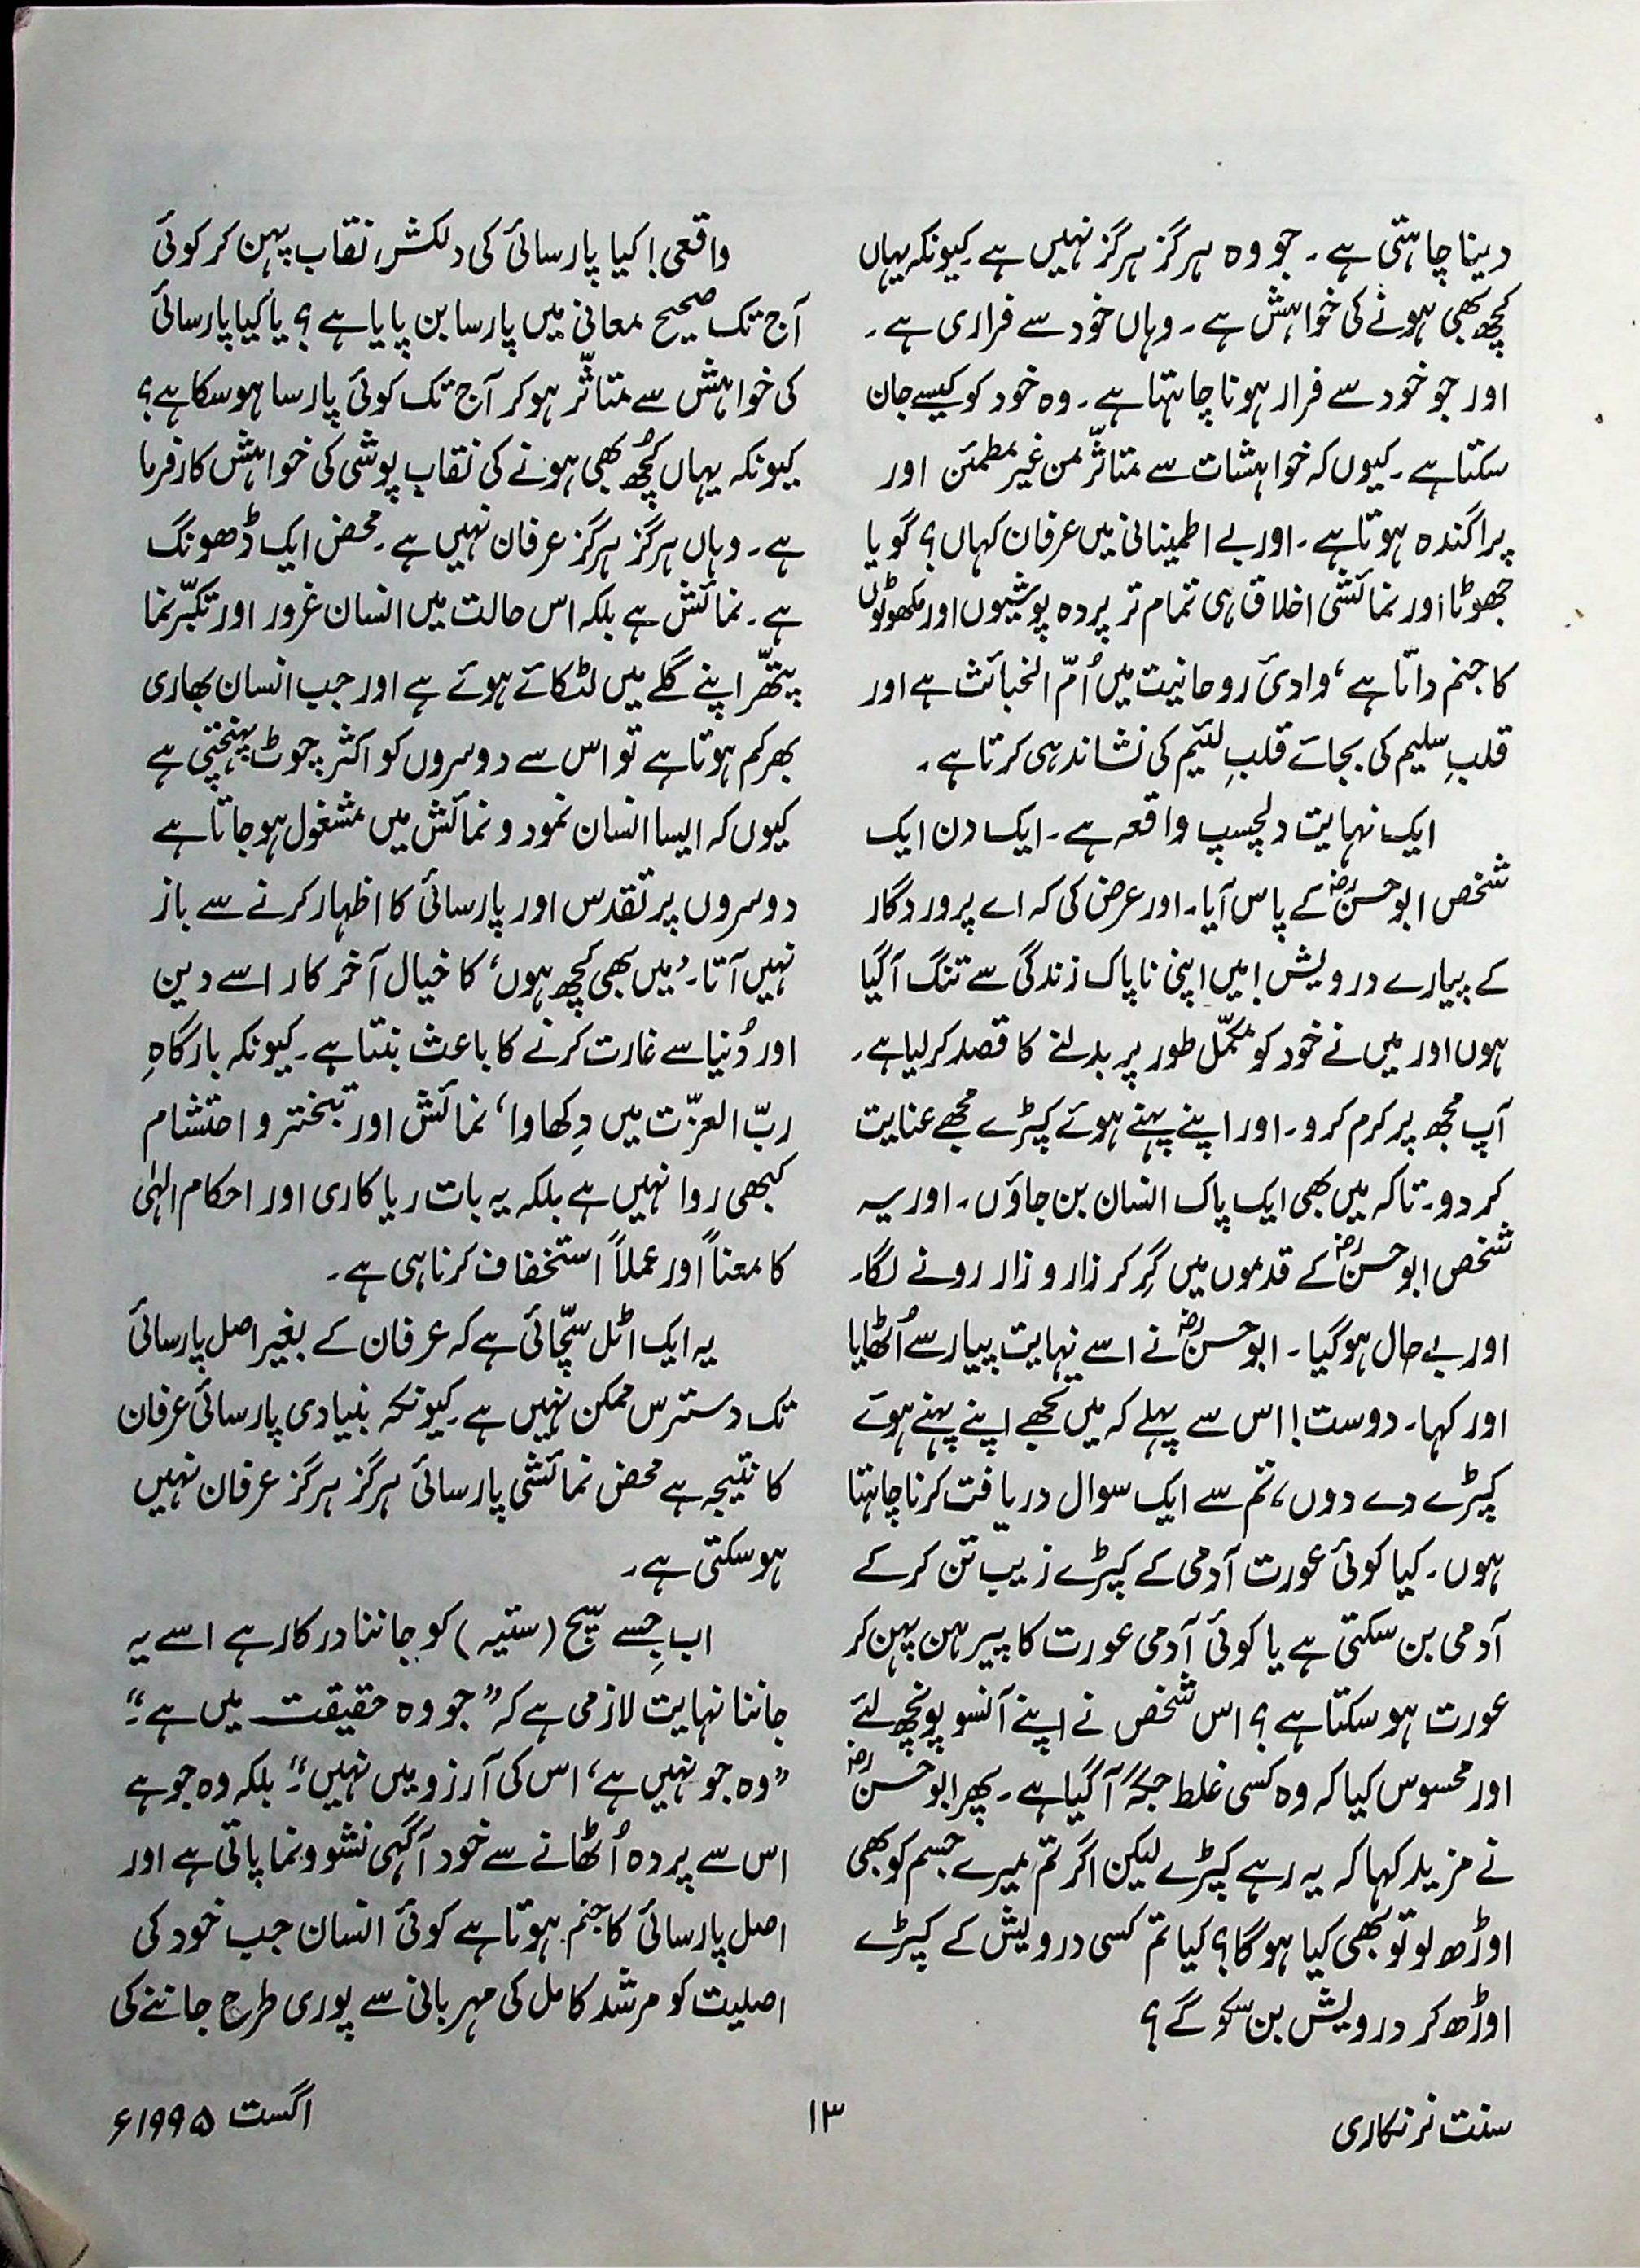 دینا چاہتی ہے۔ جو وہ ہرگز ہرگز نہیں ہے۔ کیونکہ یہاں
کچھ بھی ہونے کی خواہش ہے۔ وہاں خود سے فراری ہے۔
اور جو خود سے فرار ہونا چاہتا ہے۔ وہ خود کو کیسے جان
سکتا ہے۔ کیوں کہ خواہشات سے متاثّر من غیر مطمئن اور
پراگندہ ہوتا ہے۔ اور بے اطمینانی میں عرفان کہاں؟ گویا
جھوٹا اور نمائشی اخلاق ہی تمام تر پردہ پوشیوں اور مکھوٹوں
کا جنم داتا ہے، وادئ روحانیت میں اُمّ الخبائث ہے اور
قلبِ سلیم کی بجائے قلبِ لئیم کی نشاندہی کرتا ہے۔
ایک نہایت دلچسپ واقعہ ہے۔ ایک دن ایک
شخص ابوحسنؓ کے پاس آیا۔ اور عرض کی کہ اے پروردگار
کے پیارے درویش! میں اپنی ناپاک زندگی سے تنگ آگیا
ہوں اور میں نے خود کو مکمّل طور پر بدلنے کا قصد کرلیا ہے۔
آپ مجھ پر کرم کرو۔ اور اپنے پہنے ہوئے کپڑے مجھے عنایت
کر دو۔ تاکہ میں بھی ایک پاک انسان بن جاؤں۔ اور یہ
شخص ابوحسنؓ کے قدموں میں گِر کر زار و زار رونے لگا۔
اور بے حال ہوگیا۔ ابوحسنؓ نے اسے نہایت پیار سے اُٹھایا
اور کہا۔ دوست! اس سے پہلے کہ میں تجھے اپنے پہنے ہوئے
کپڑے دے دوں، تم سے ایک سوال دریافت کرنا چاہتا
ہوں۔ کیا کوئی عورت آدمی کے کپڑے زیب تن کرکے
آدمی بن سکتی ہے یا کوئی آدمی عورت کا پیرہن پہن کر
عورت ہو سکتا ہے؟ اس شخص نے اپنے آنسو پونچھ لئے
اور محسوس کیا کہ وہ کسی غلط جگہ آگیا ہے۔ پھر ابوحسنؓ
نے مزید کہا کہ یہ رہے کپڑے لیکن اگر تم میرے جسم کو بھی
اوڑھ لو تو بھی کیا ہوگا؟ کیا تم کسی درویش کے کپڑے
اوڑھ کر درویش بن سکو گے؟
واقعی! کیا پارسائی کی دلکش نقاب پہن کر کوئی
آج تک صحیح معانی میں پارسا بن پایا ہے؟ یا کیا پارسائی
کی خواہش سے متاثّر ہوکر آج تک کوئی پارسا ہوسکا ہے؟
کیونکہ یہاں کُچھ بھی ہونے کی نقاب پوشی کی خواہش کارفرما
ہے۔ وہاں ہرگز ہرگز عرفان نہیں ہے۔ محض ایک ڈھونگ
ہے۔ نمائش ہے بلکہ اس حالت میں انسان غرور اور تکبّر نما
پتھّر اپنے گلے میں لٹکائے ہوئے ہے اور جب انسان بھاری
بھرکم ہوتا ہے تو اس سے دوسروں کو اکثر چوٹ پہنچتی ہے
کیوں کہ ایسا انسان نمود و نمائش میں مشغول ہوجاتا ہے
دوسروں پر تقدس اور پارسائی کا اظہار کرنے سے باز
نہیں آتا۔ ’میں بھی کچھ ہوں‘ کا خیال آخرکار اسے دین
اور دُنیا سے غارت کرنے کا باعث بنتا ہے۔ کیونکہ بارگاہِ
ربّ العزّت میں دِکھاوا، نمائش اور تبختر و احتشام
کبھی روا نہیں ہے بلکہ یہ بات ریاکاری اور احکام الہٰی
کا معناً اور عملاً استخفاف کرنا ہی ہے۔
یہ ایک اٹل سچّائی ہے کہ عرفان کے بغیر اصل پارسائی
تک دسترس ممکن نہیں ہے۔ کیونکہ بنیادی پارسائی عرفان
کا نتیجہ ہے محض نمائشی پارسائی ہرگز ہرگز عرفان نہیں
ہوسکتی ہے۔
اب جِسے سچ (ستیہ) کو جاننا درکار ہے اسے یہ
جاننا نہایت لازمی ہے کہ ”جو وہ حقیقت میں ہے“۔
”وہ جو نہیں ہے، اس کی آرزو میں نہیں“۔ بلکہ وہ جو ہے
اس سے پردہ اُٹھانے سے خود آگہی نشو و نما پاتی ہے اور
اصل پارسائی کا جنم ہوتا ہے کوئی انسان جب خود کی
اصلیت کو مرشد کامل کی مہربانی سے پوری طرح جاننے کی
سنت نرنکاری
۱۳
اگست ۱۹۹۵ء